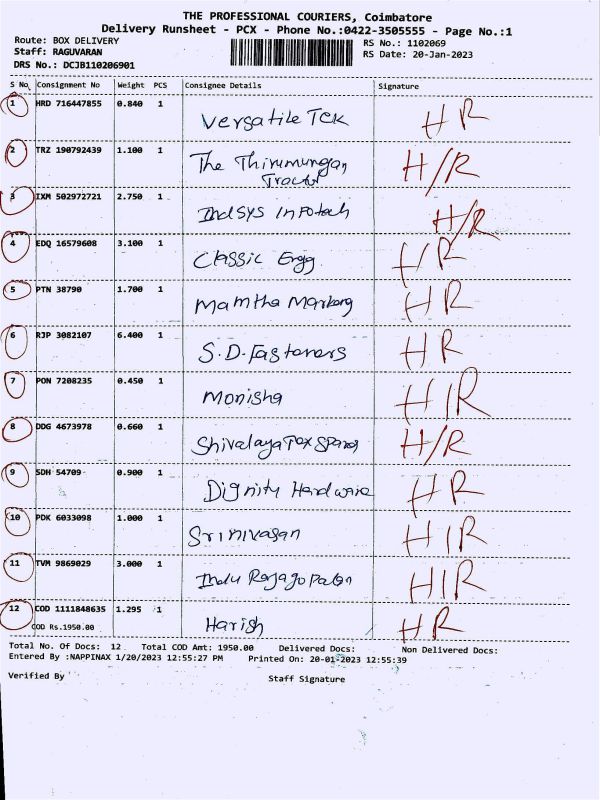 THE PROFESSIONAL COURIERS, Coimbatore
Delivery Runsheet - PCX - Phone No.:0422-3505555 - Page No.:1
Route: BOX DELIVERY RS No.: 1102069
Staff: RAGUVARAN RS Date: 20-Jan-2023
DRS No.: DCJB110206901
S No Consignment No Weight PCS Consignee Details Signature
1 HRD 716447855 0.840 1 Versatile Tek H R
2 TRZ 190792439 1.100 1 The Thirumurugan H/R
Tractor
3 IXM 502972721 2.750 1 IndSys Infotech H/R
4 EDQ 16579608 3.100 1 Classic Engg H/R
5 PTN 38790 1.700 1 Mamtha H R
6 RJP 3082107 6.400 1 S.D. Fasteners H R
7 PON 7208235 0.450 1 Monisha H/R
8 DDG 4673978 0.660 1 Shivalaya Tex Spares H/R
9 SDH 54709 0.900 1 Dignity Hardware H R
10 PDK 6033098 1.000 1 Srinivasan H/R
11 TVM 9869029 3.000 1 Indu Rajagopalan H/R
12 COD 1111848635 1.295 1 Harish H R
COD Rs.1950.00
Total No. Of Docs: 12 Total COD Amt: 1950.00 Delivered Docs: Non Delivered Docs:
Entered By :NAPPINAX 1/20/2023 12:55:27 PM Printed On: 20-01-2023 12:55:39
Verified By Staff Signature